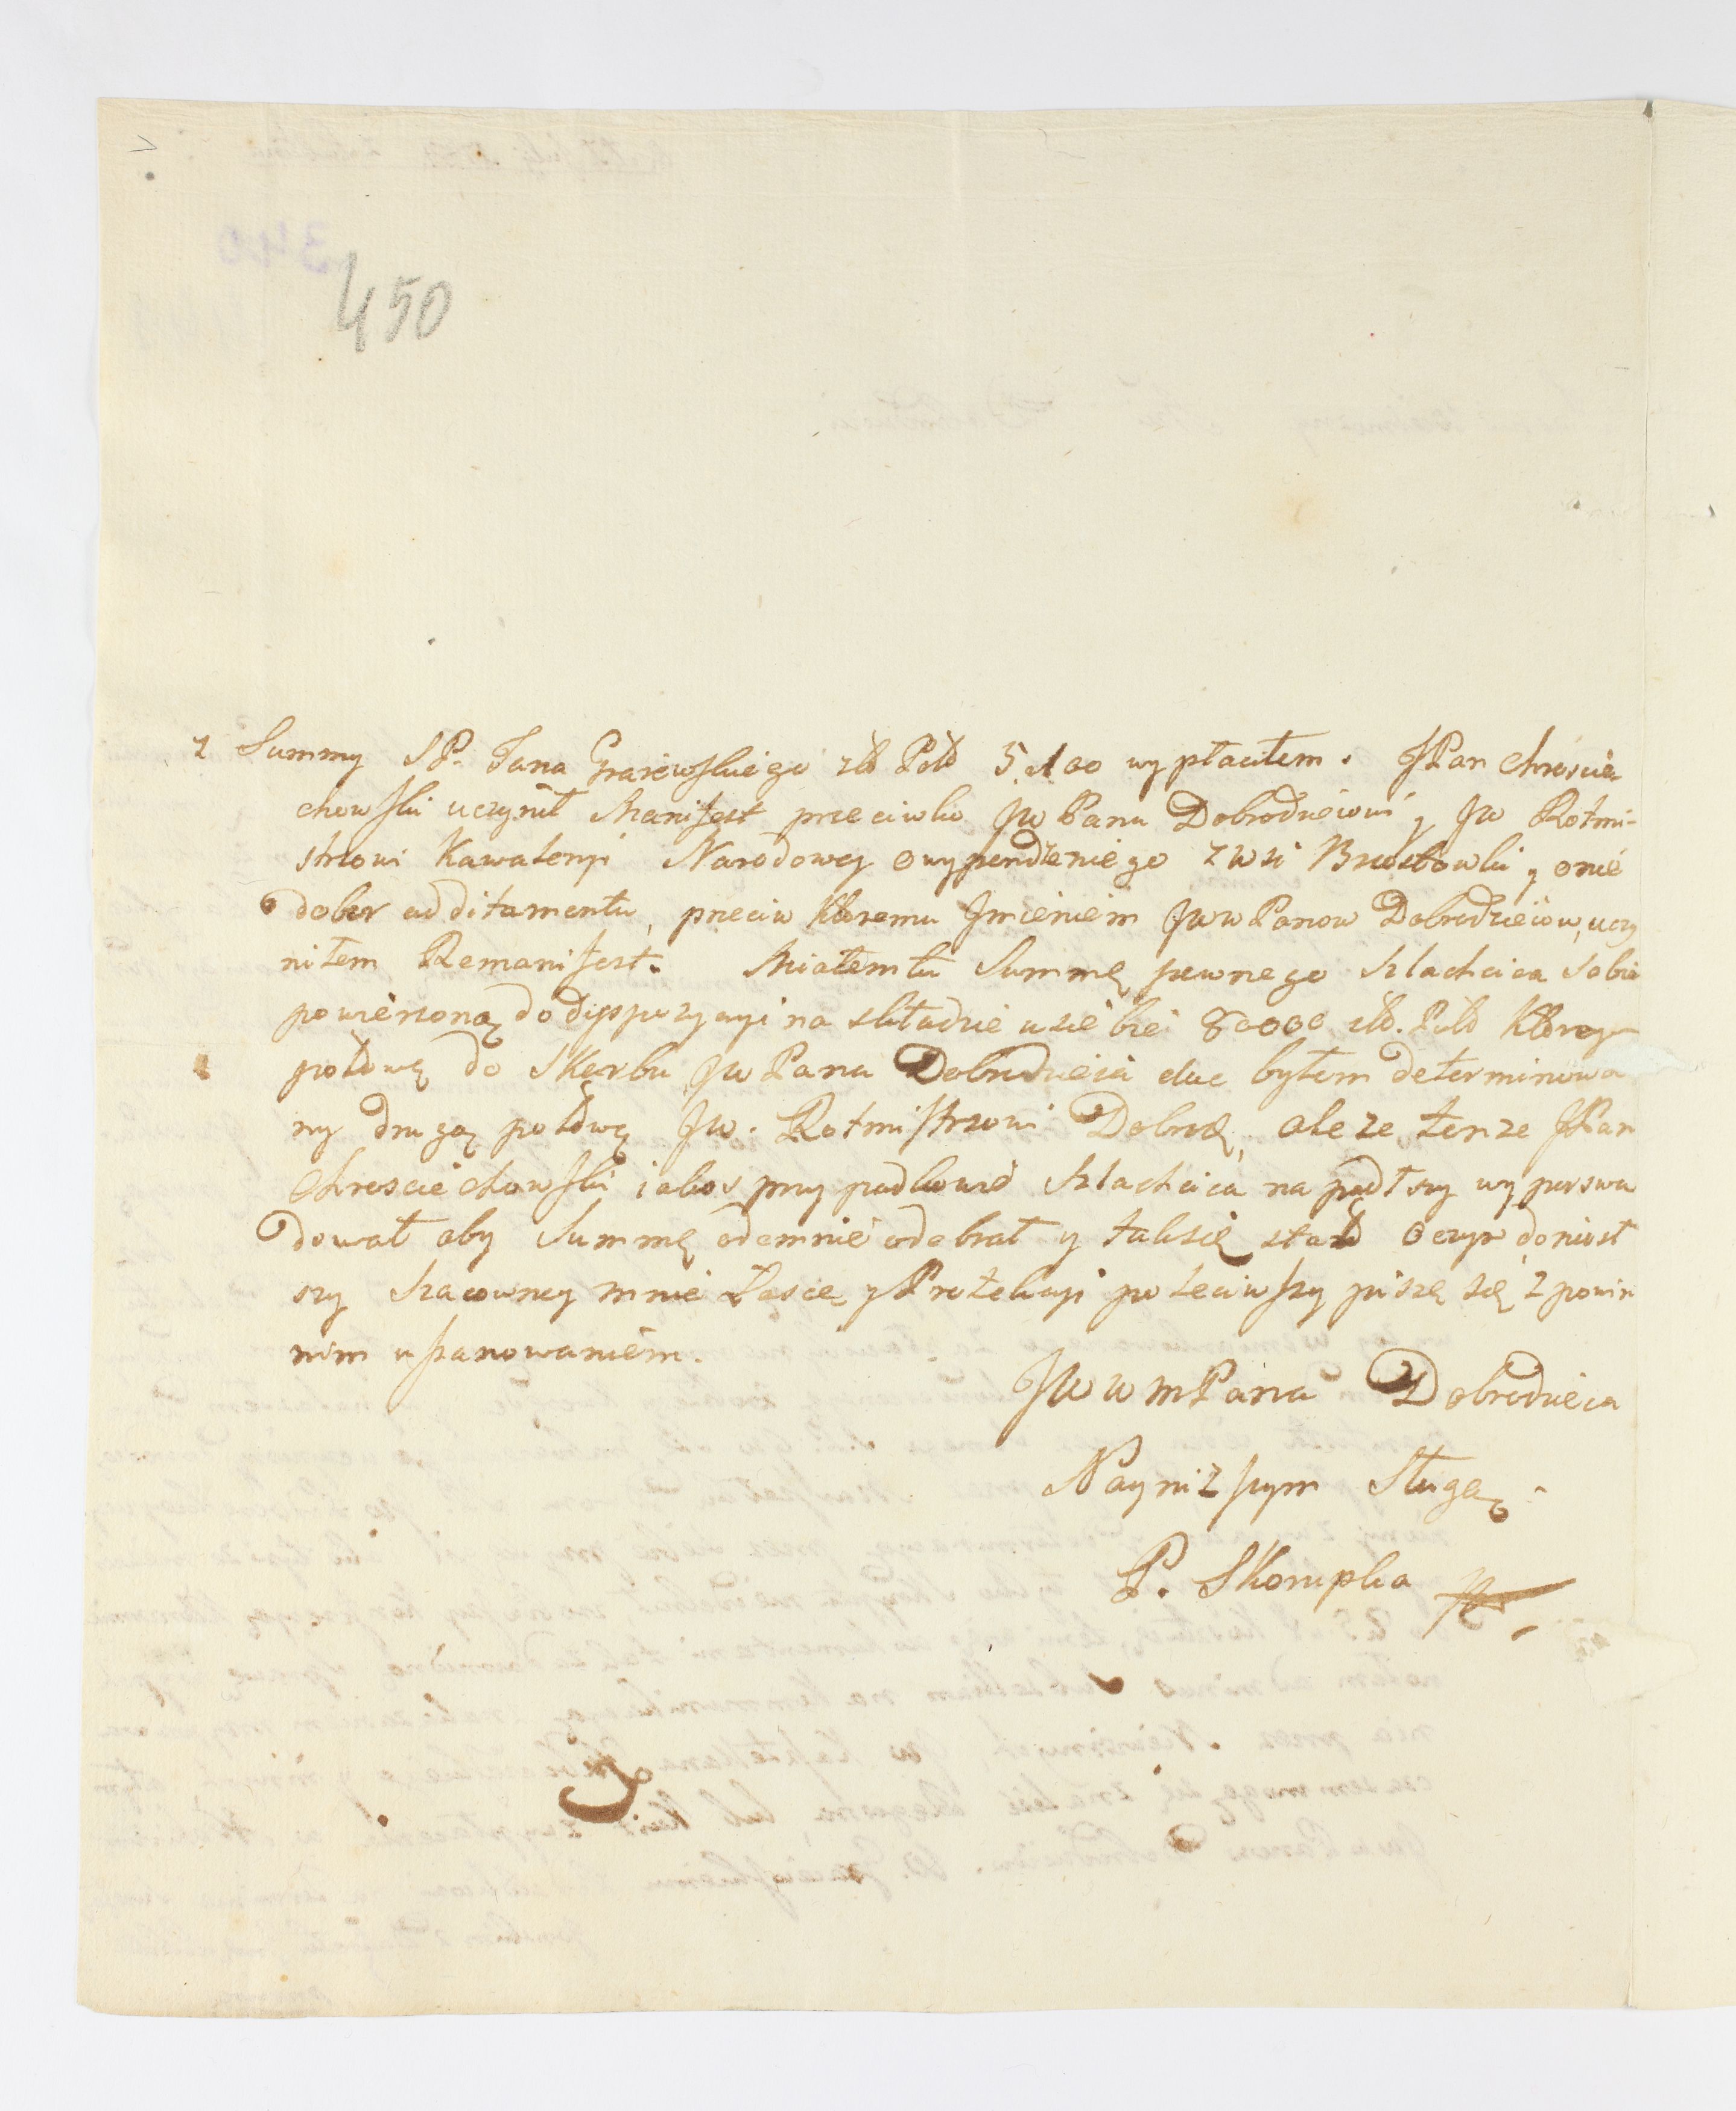 450
z Summy SP. Jana Grajewskiego zło Pold 5100 wypłaciłem. JPan Chroście
chowski uczynił Manifest przeciwko JW Panu Dobrodzieiowi y JW Rotmi-
strzowi Kawaleryi Narodowey o wypendzenie go z wsi Brzostowki y o nie
dobor additamentu, przeciw ktoremu Jmieniem JWW Panow Dobrodzieiow, uczy
niłem Remanifest. Miałem tu Summę pewnego Szlachcica sobie
powierzoną do dyspozycyi na składzie u siebie 80000 zło. Pold ktorey
połowę do Skarbu JW Pana Dobrodzieia dać byłem determinowa
ny drugą połowę JW. Rotmistrzowi Dobrod, ale ze tenze JPan
Chresciechowski iakos przypadkowie Szlachcica napadłszy wyperswa
dował aby Summę odemnie odebrał y tak się stało o czym doniosł
szy Szacowney mnie Łasce y Protekcyi poleciwszy piszę się z powin
nym uszanowaniem.
JWWmPana Dobrodzieia
Nayniższym Sługą
P. Skorupka